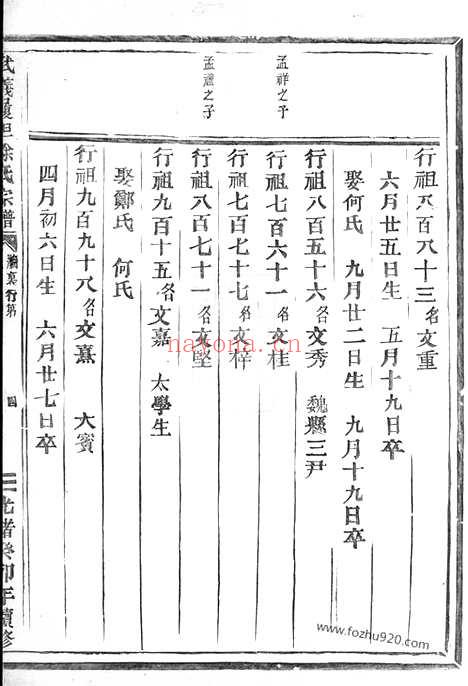 行祖八百八十三名文重
六月廿五日生 五月十九日卒
娶何氏 九月廿二日生 九月十九日卒
行祖八百五十六名文秀 魏縣三尹
孟祥之子
行祖七百六十一名文桂
行祖七百七十七名文梓
孟瀘之子
行祖八百七十一名文堅
行祖九百十五名文嘉 太學生
娶鄭氏 何氏
行祖九百九十八名文熹 大賓
四月初六日生 六月廿七日卒
武義 徐氏宗譜 行第 四 光緒癸卯年續修
nayona.cn
www.fozhu920.com